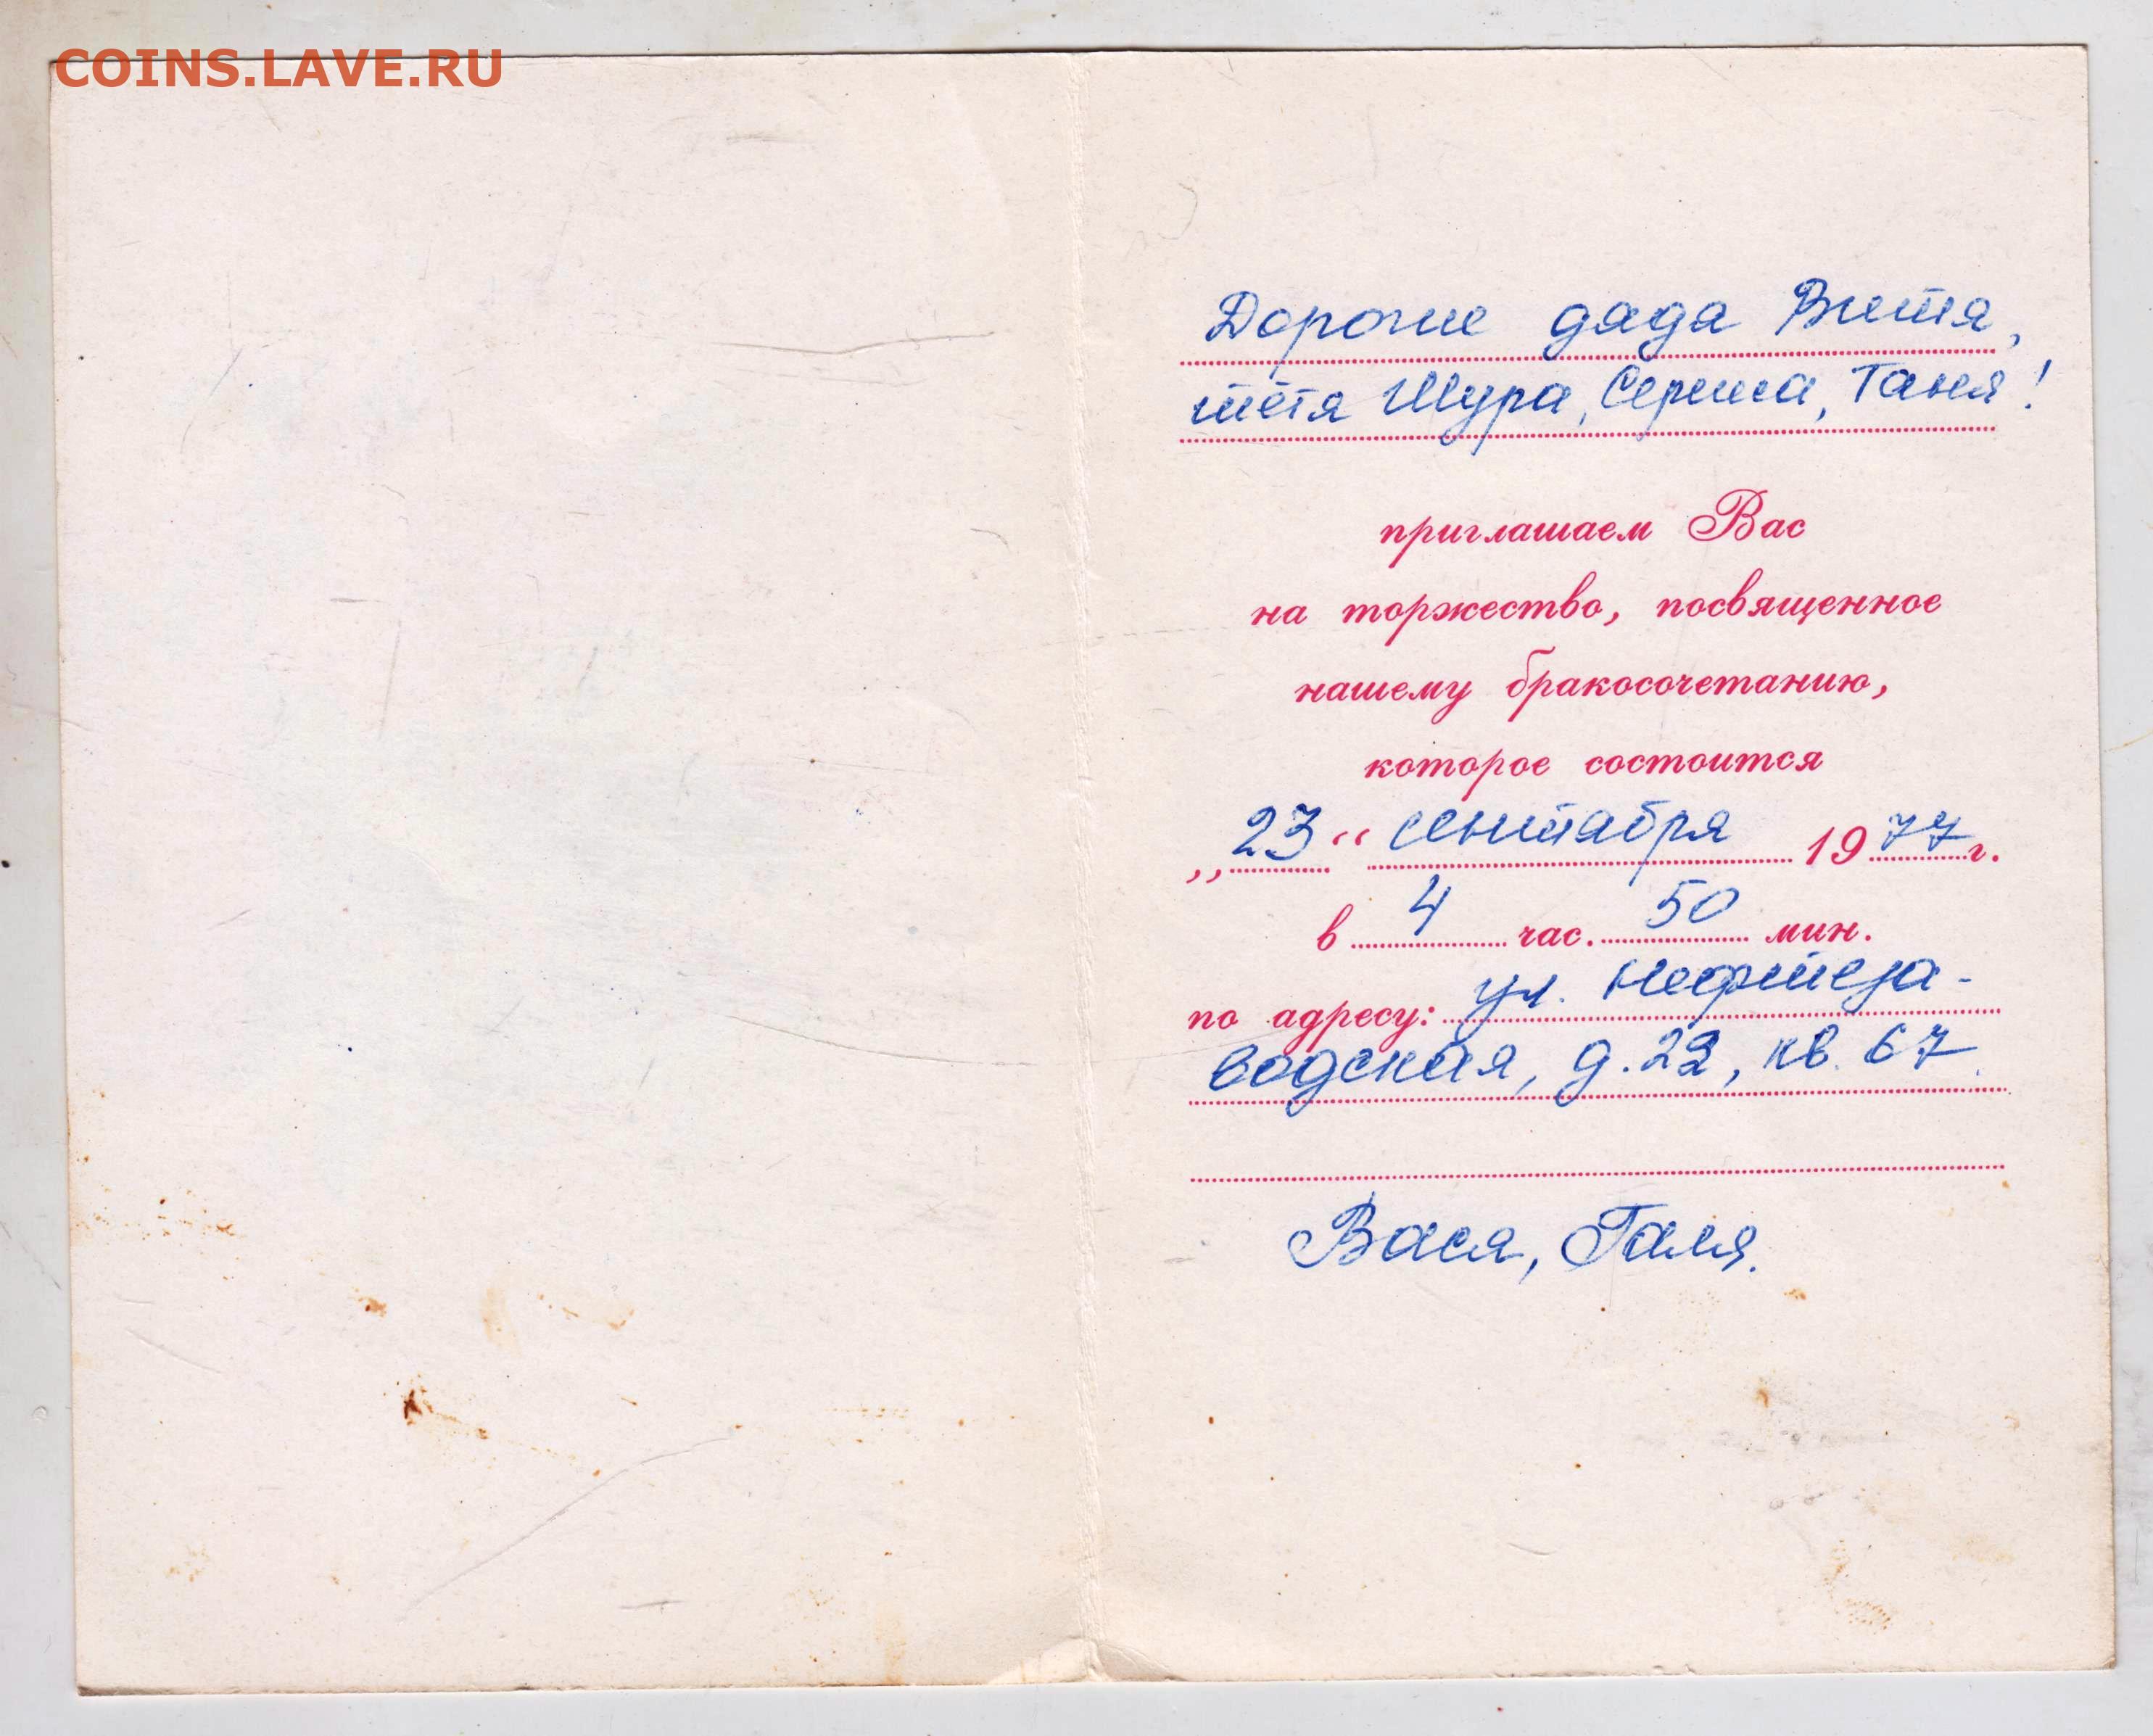 COINS.LAVE.RU
Дорогие дядя Витя,
тётя Шура, Сережа, Таня!
приглашаем Вас
на торжество, посвященное
нашему бракосочетанию,
которое состоится
„23“ сентября 1977 г.
в 4 час. 50 мин.
по адресу: ул. Нефтеза-
водская, д. 22, кв. 67.
Вася, Галя.